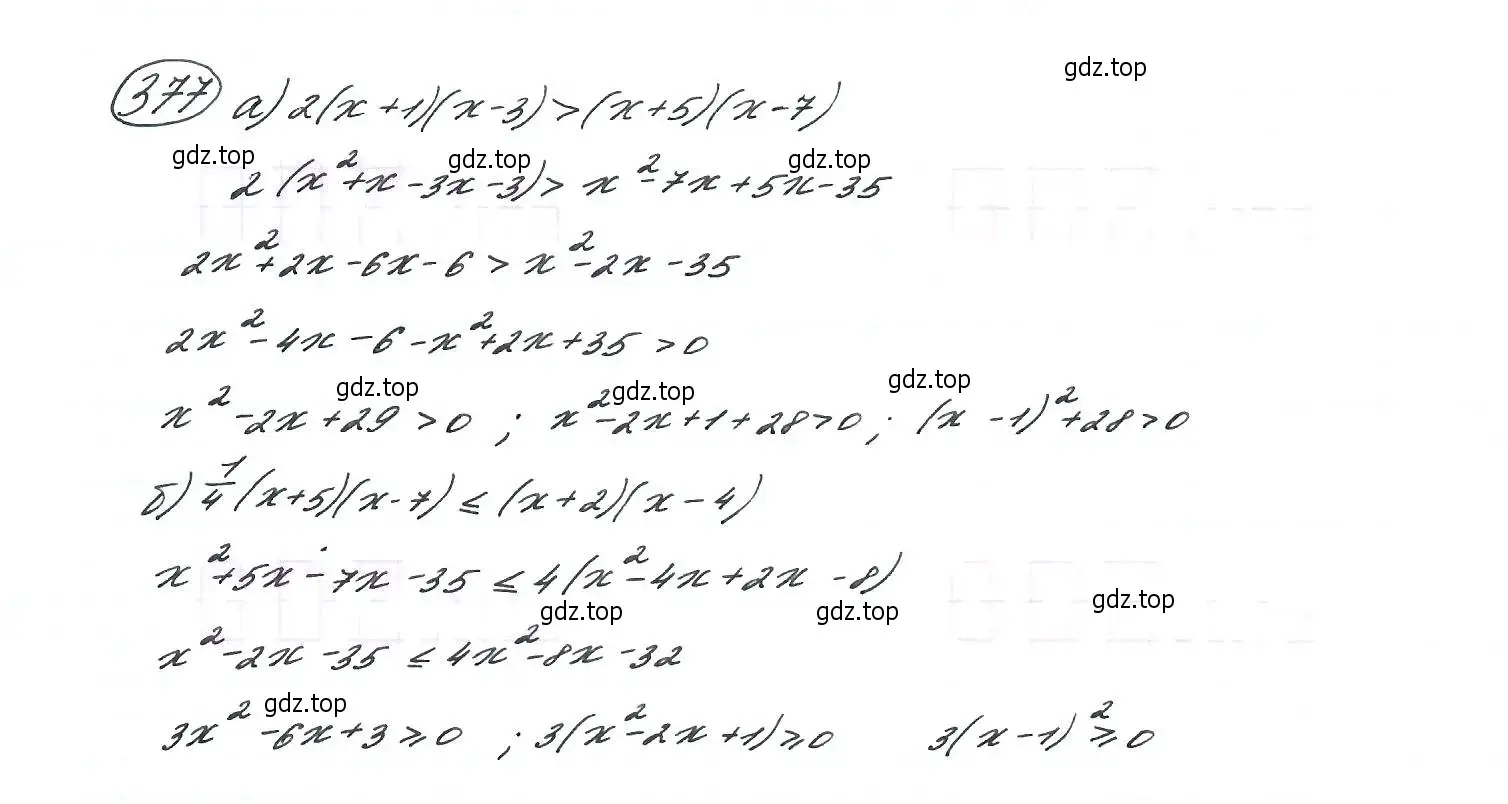 gdz.top
377 а) 2(x+1)(x-3)>(x+5)(x-7)
gdz.top gdz.top gdz.top
2(x²+x-3x-3)>x²-7x+5x-35
2x²+2x-6x-6>x²-2x-35
2x²-4x-6-x²+2x+35>0
gdz.top gdz.top gdz.top
x²-2x+29>0; x²-2x+1+28>0; (x-1)²+28>0
б) 1/4(x+5)(x-7)≤(x+2)(x-4)
x²+5x-7x-35≤4(x²-4x+2x-8)
gdz.top gdz.top gdz.top
x²-2x-35≤4x²-8x-32
gdz.top
3x²-6x+3≥0; 3(x²-2x+1)≥0 3(x-1)²≥0